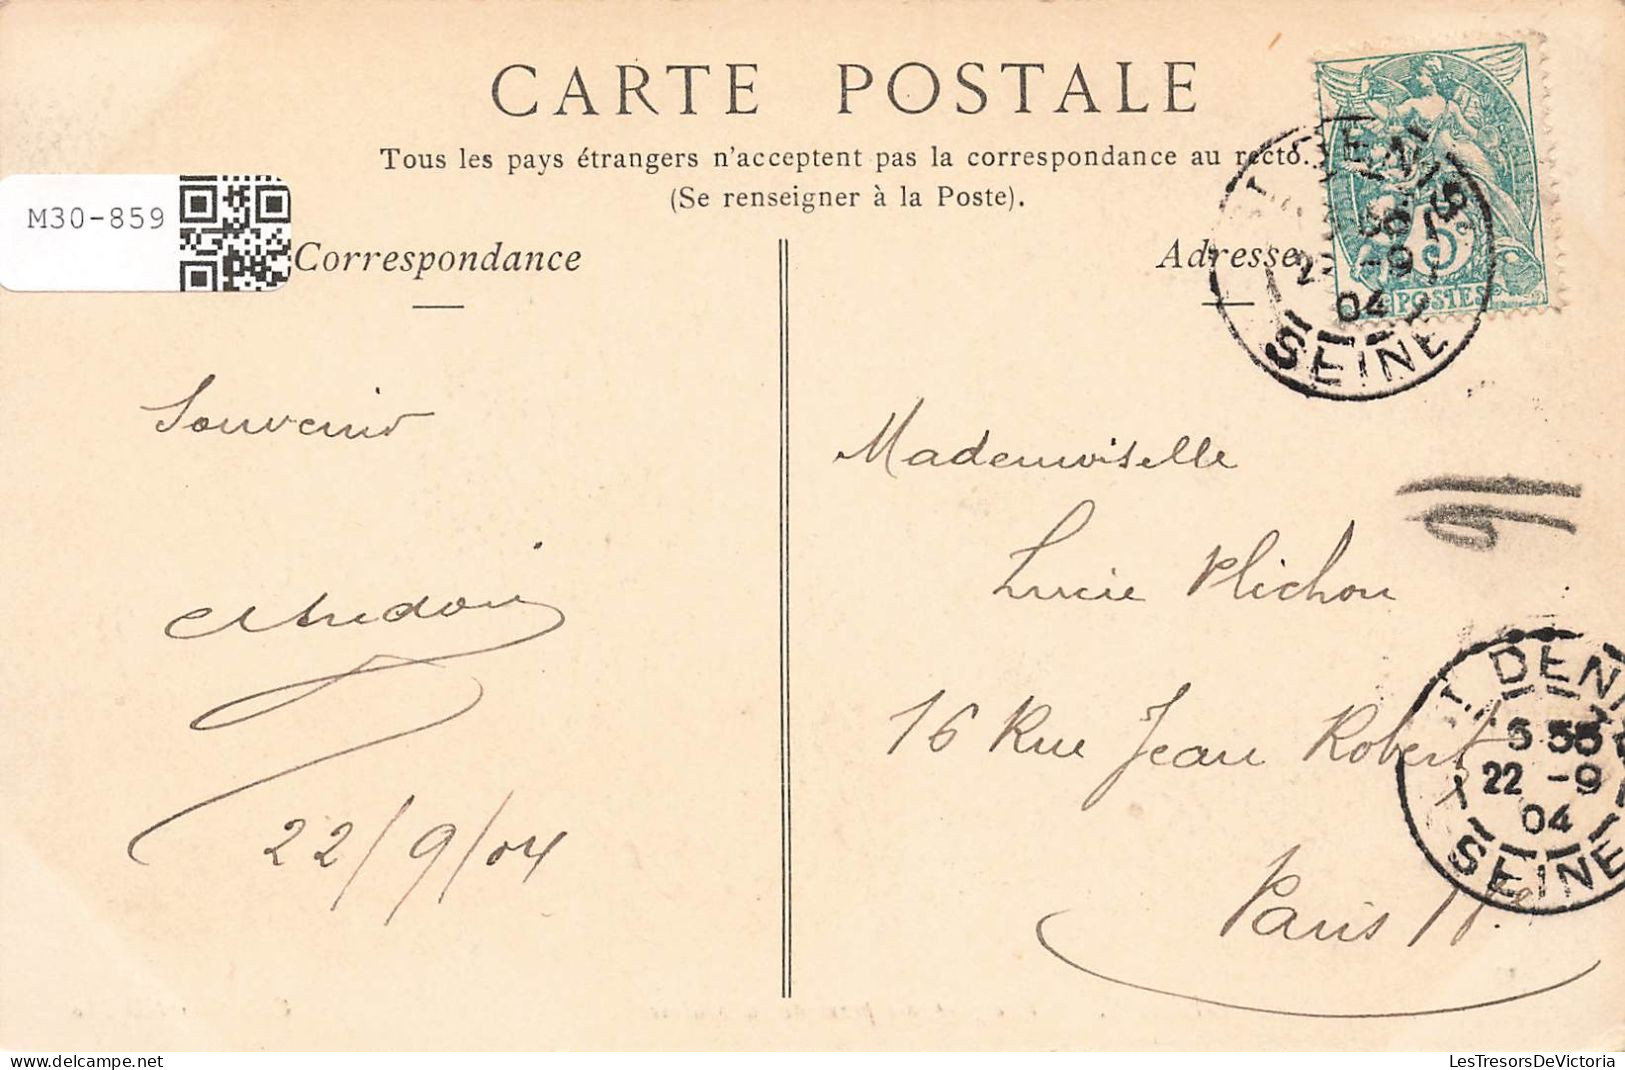 CARTE POSTALE
Tous les pays étrangers n'acceptent pas la correspondance au recto.
(Se renseigner à la Poste).
M30-859
Correspondance
Adresse
5
POSTES
DENIS
-9
04
SEINE
Souvenir
22/9/04
Mademoiselle
Lucie Plichon
16 Rue Jean Robert
Paris
16
ST DENIS
5 55
22 -9
04
SEINE
LesTresorsDeVictoria